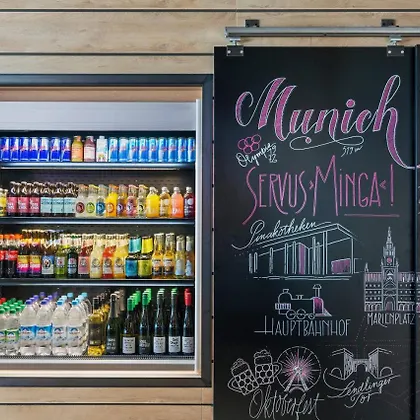 Munich
Olympia
1972
519 m
SERVUS›MINGA‹!
Pinakotheken
HAUPTBAHNHOF
MARIENPLATZ
Oktoberfest
Sendlinger
Tor